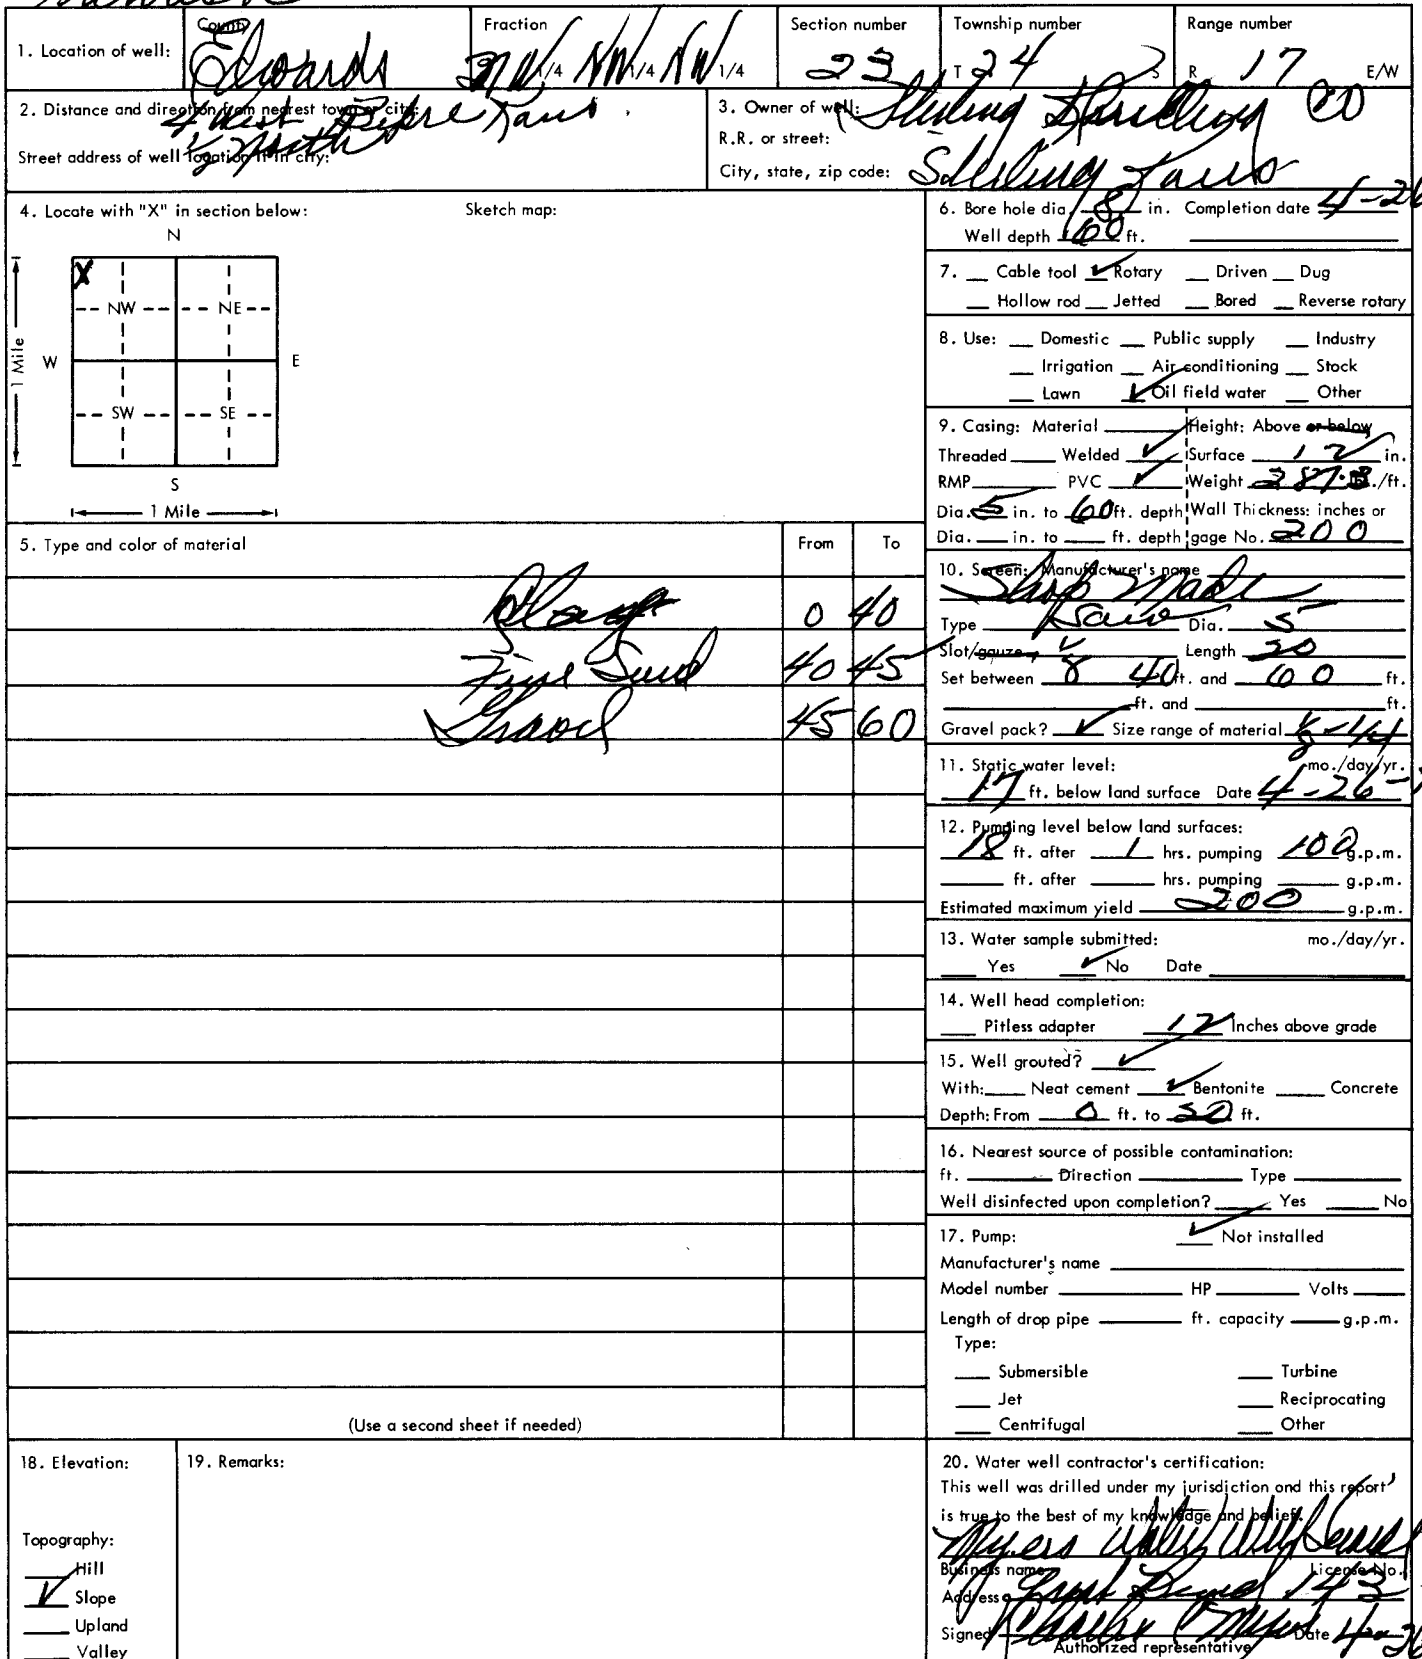 1. Location of well: County Edwards Fraction NW 1/4 NW 1/4 NW 1/4 Section number 23 Township number T 24 S Range number R 17 E/W
2. Distance and direction from nearest town or city: 4 West Kans
1/2 North
Street address of well location if in city:
3. Owner of well: Sterling Drilling CO
R.R. or street:
City, state, zip code: Sterling Kans
4. Locate with "X" in section below: Sketch map:
N
X
NW NE
W E
1 Mile
SW SE
S
1 Mile
5. Type and color of material From To
0 40
Fine Sand 40 45
Gravel 45 60
(Use a second sheet if needed)
6. Bore hole dia. 8 in. Completion date 4-26
Well depth 60 ft.
7. Cable tool ✓ Rotary Driven Dug
Hollow rod Jetted Bored Reverse rotary
8. Use: Domestic Public supply Industry
Irrigation Air conditioning Stock
Lawn ✓ Oil field water Other
9. Casing: Material Height: Above or below
Threaded Welded ✓ Surface 12 in.
RMP PVC ✓ Weight lb./ft.
Dia. 5 in. to 60 ft. depth Wall Thickness: inches or
Dia. in. to ft. depth gage No. 200
10. Screen: Manufacturer's name
Shop Made
Type Saw Dia. 5
Slot/gauze Length 20
Set between 40 ft. and 60 ft.
ft. and ft.
Gravel pack? ✓ Size range of material 1/8-1/4
11. Static water level: mo./day/yr.
17 ft. below land surface Date 4-26-
12. Pumping level below land surfaces:
18 ft. after 1 hrs. pumping 100 g.p.m.
ft. after hrs. pumping g.p.m.
Estimated maximum yield 200 g.p.m.
13. Water sample submitted: mo./day/yr.
Yes ✓ No Date
14. Well head completion:
Pitless adapter 12 Inches above grade
15. Well grouted? ✓
With: Neat cement ✓ Bentonite Concrete
Depth: From 0 ft. to ft.
16. Nearest source of possible contamination:
ft. Direction Type
Well disinfected upon completion? Yes No
17. Pump: ✓ Not installed
Manufacturer's name
Model number HP Volts
Length of drop pipe ft. capacity g.p.m.
Type:
Submersible Turbine
Jet Reciprocating
Centrifugal Other
18. Elevation:
Topography:
Hill
✓ Slope
Upland
Valley
19. Remarks:
20. Water well contractor's certification:
This well was drilled under my jurisdiction and this report
is true to the best of my knowledge and belief.
Myers Water Well Service
Business name License No.
Address Great Bend 143
Signed Charles Myers Date 4-26
Authorized representative